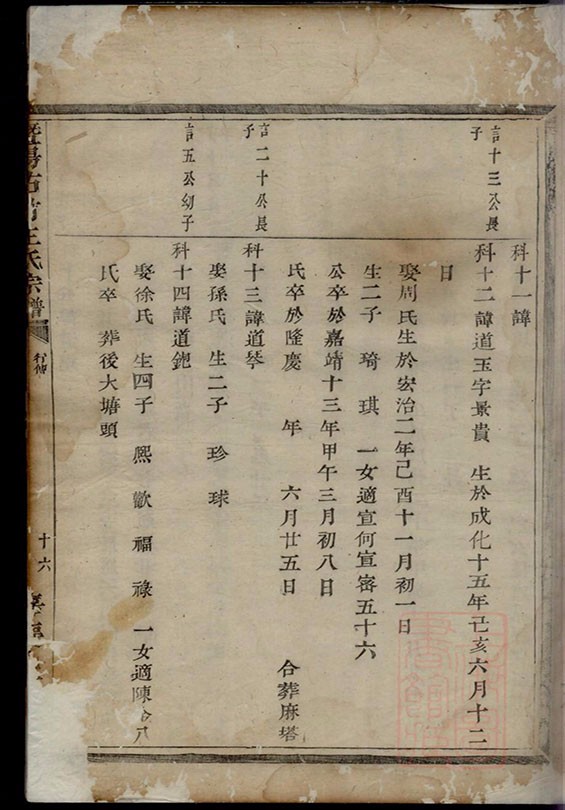 科十一諱
言十三公長
子
科十二諱道玉字景貴 生於成化十五年己亥六月十二
日
娶周氏生於宏治二年己酉十一月初一日
生二子 琦 琪 一女適宣何宣容五十六
公卒於嘉靖十三年甲午三月初八日
氏卒於隆慶 年 六月廿五日 合葬麻塔
言二十公長
子
科十三諱道琴
娶孫氏 生二子 珍 球
言五公幼子
科十四諱道鈀
娶徐氏 生四子 熙 歡 福 祿 一女適陳 八
氏卒 葬後大塘頭
王氏宗譜
行傳
十六